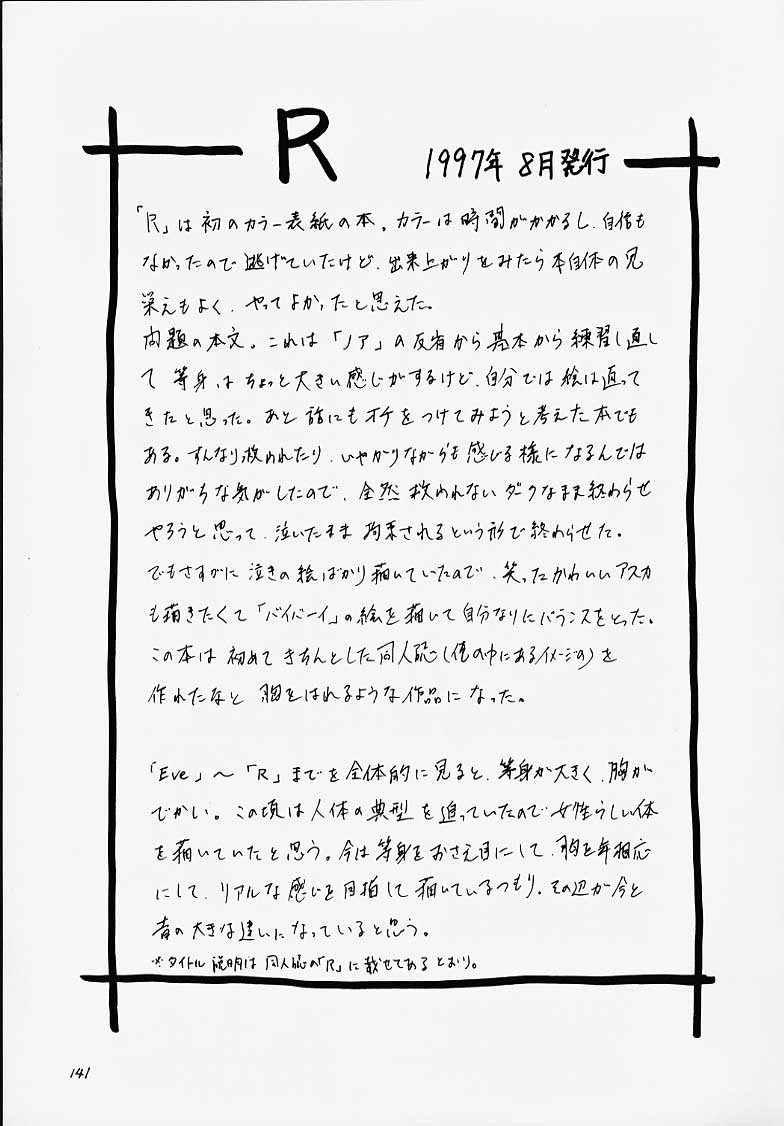 R
1997年 8月発行
「R」は初のカラー表紙の本。カラーは時間がかかるし、自信も
なかったので逃げていたけど、出来上がりをみたら本自体の見
栄えもよく、やってよかったと思えた。
問題の本文。これは「ノア」の反省から基本から練習し直し
て等身はちょっと大きい感じがするけど、自分では絵は直って
きたと思った。あと話にもオチをつけてみようと考えた本でも
ある。すんなり救われたり、いやがりながらも感じる様になるんでは
ありがちな気がしたので、全然救われないダークなまま終わらせ
やろうと思って、泣いたまま拘束されるという形で終わらせた。
でもさすがに泣きの絵ばかり描いていたので、笑ったかわいいアスカ
も描きたくて「バイバーイ」の絵を描いて自分なりにバランスをとった。
この本は初めてきちんとした同人誌(俺の中にあるイメージの)を
作れたなと胸をはれるような作品になった。
「Eve」～「R」までを全体的に見ると、等身が大きく、胸が
でかい。この頃は人体の典型を追っていたので女性らしい体
を描いていたと思う。今は等身をおさえ目にして、胸を年相応
にして、リアルな感じを目指して描いているつもり。その辺が今と
昔の大きな違いになっていると思う。
※タイトル説明は同人誌の「R」に載せてあるとおり。
141